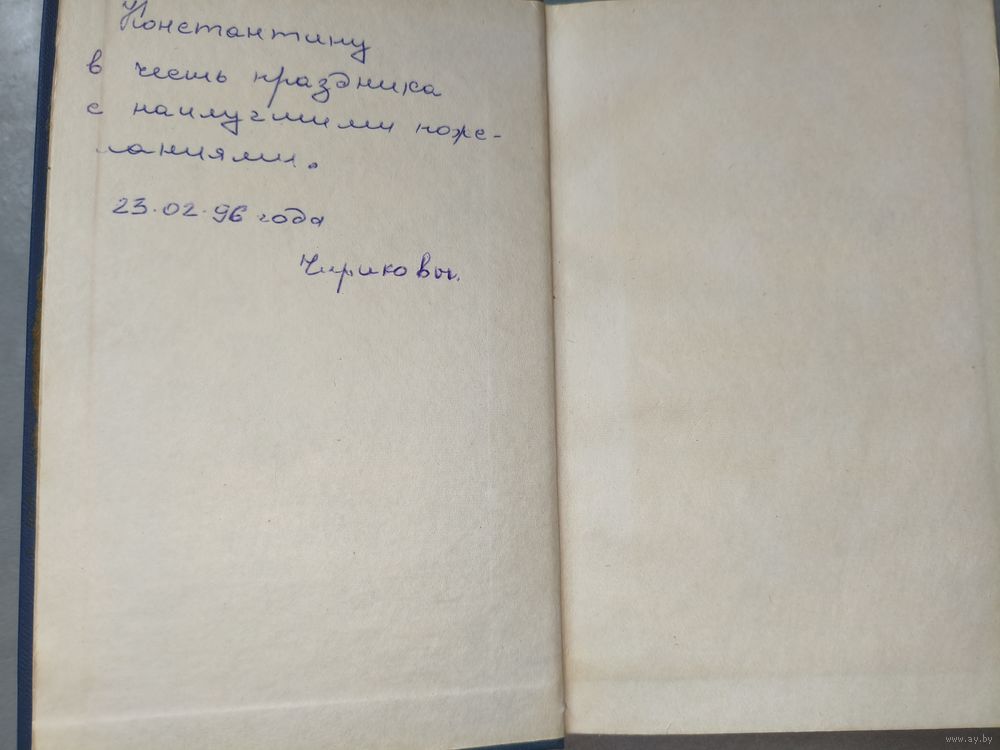 Константину
в честь праздника
с наилучшими поже-
ланиями.
23.02.96 года
Чириковы.
www.ay.by